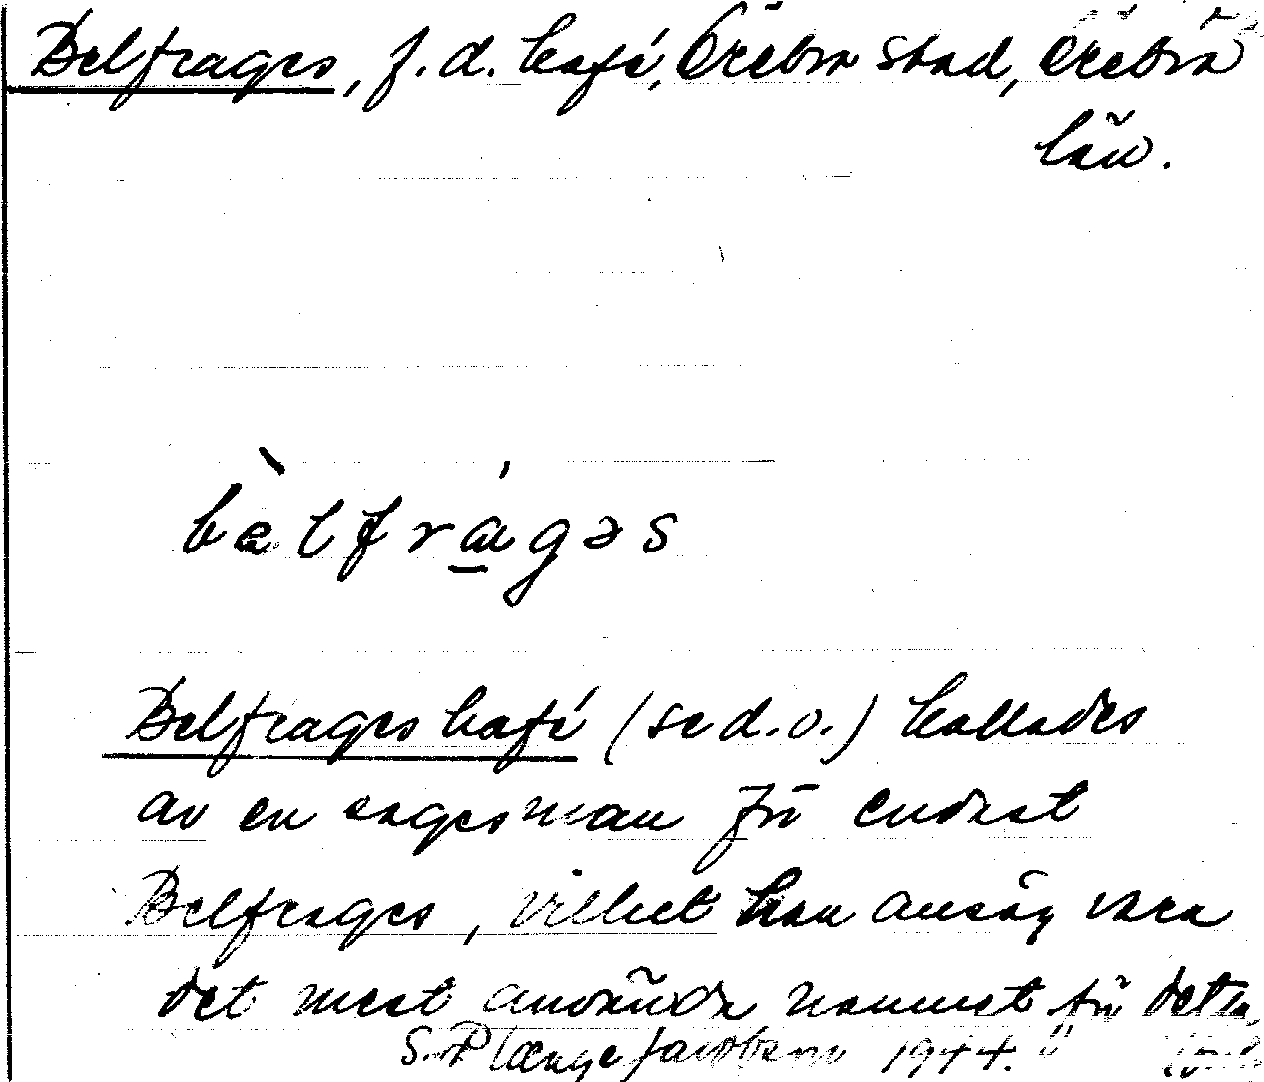 Belfrages, f.d. kafé, Örebro stad, Örebro
län.
bèlfrágəs
Belfrages kafé (se d.o.) kallades
av en sagesman för endast
Belfrages, vilket han ansåg vara
det mest använda namnet för detta.
1944.